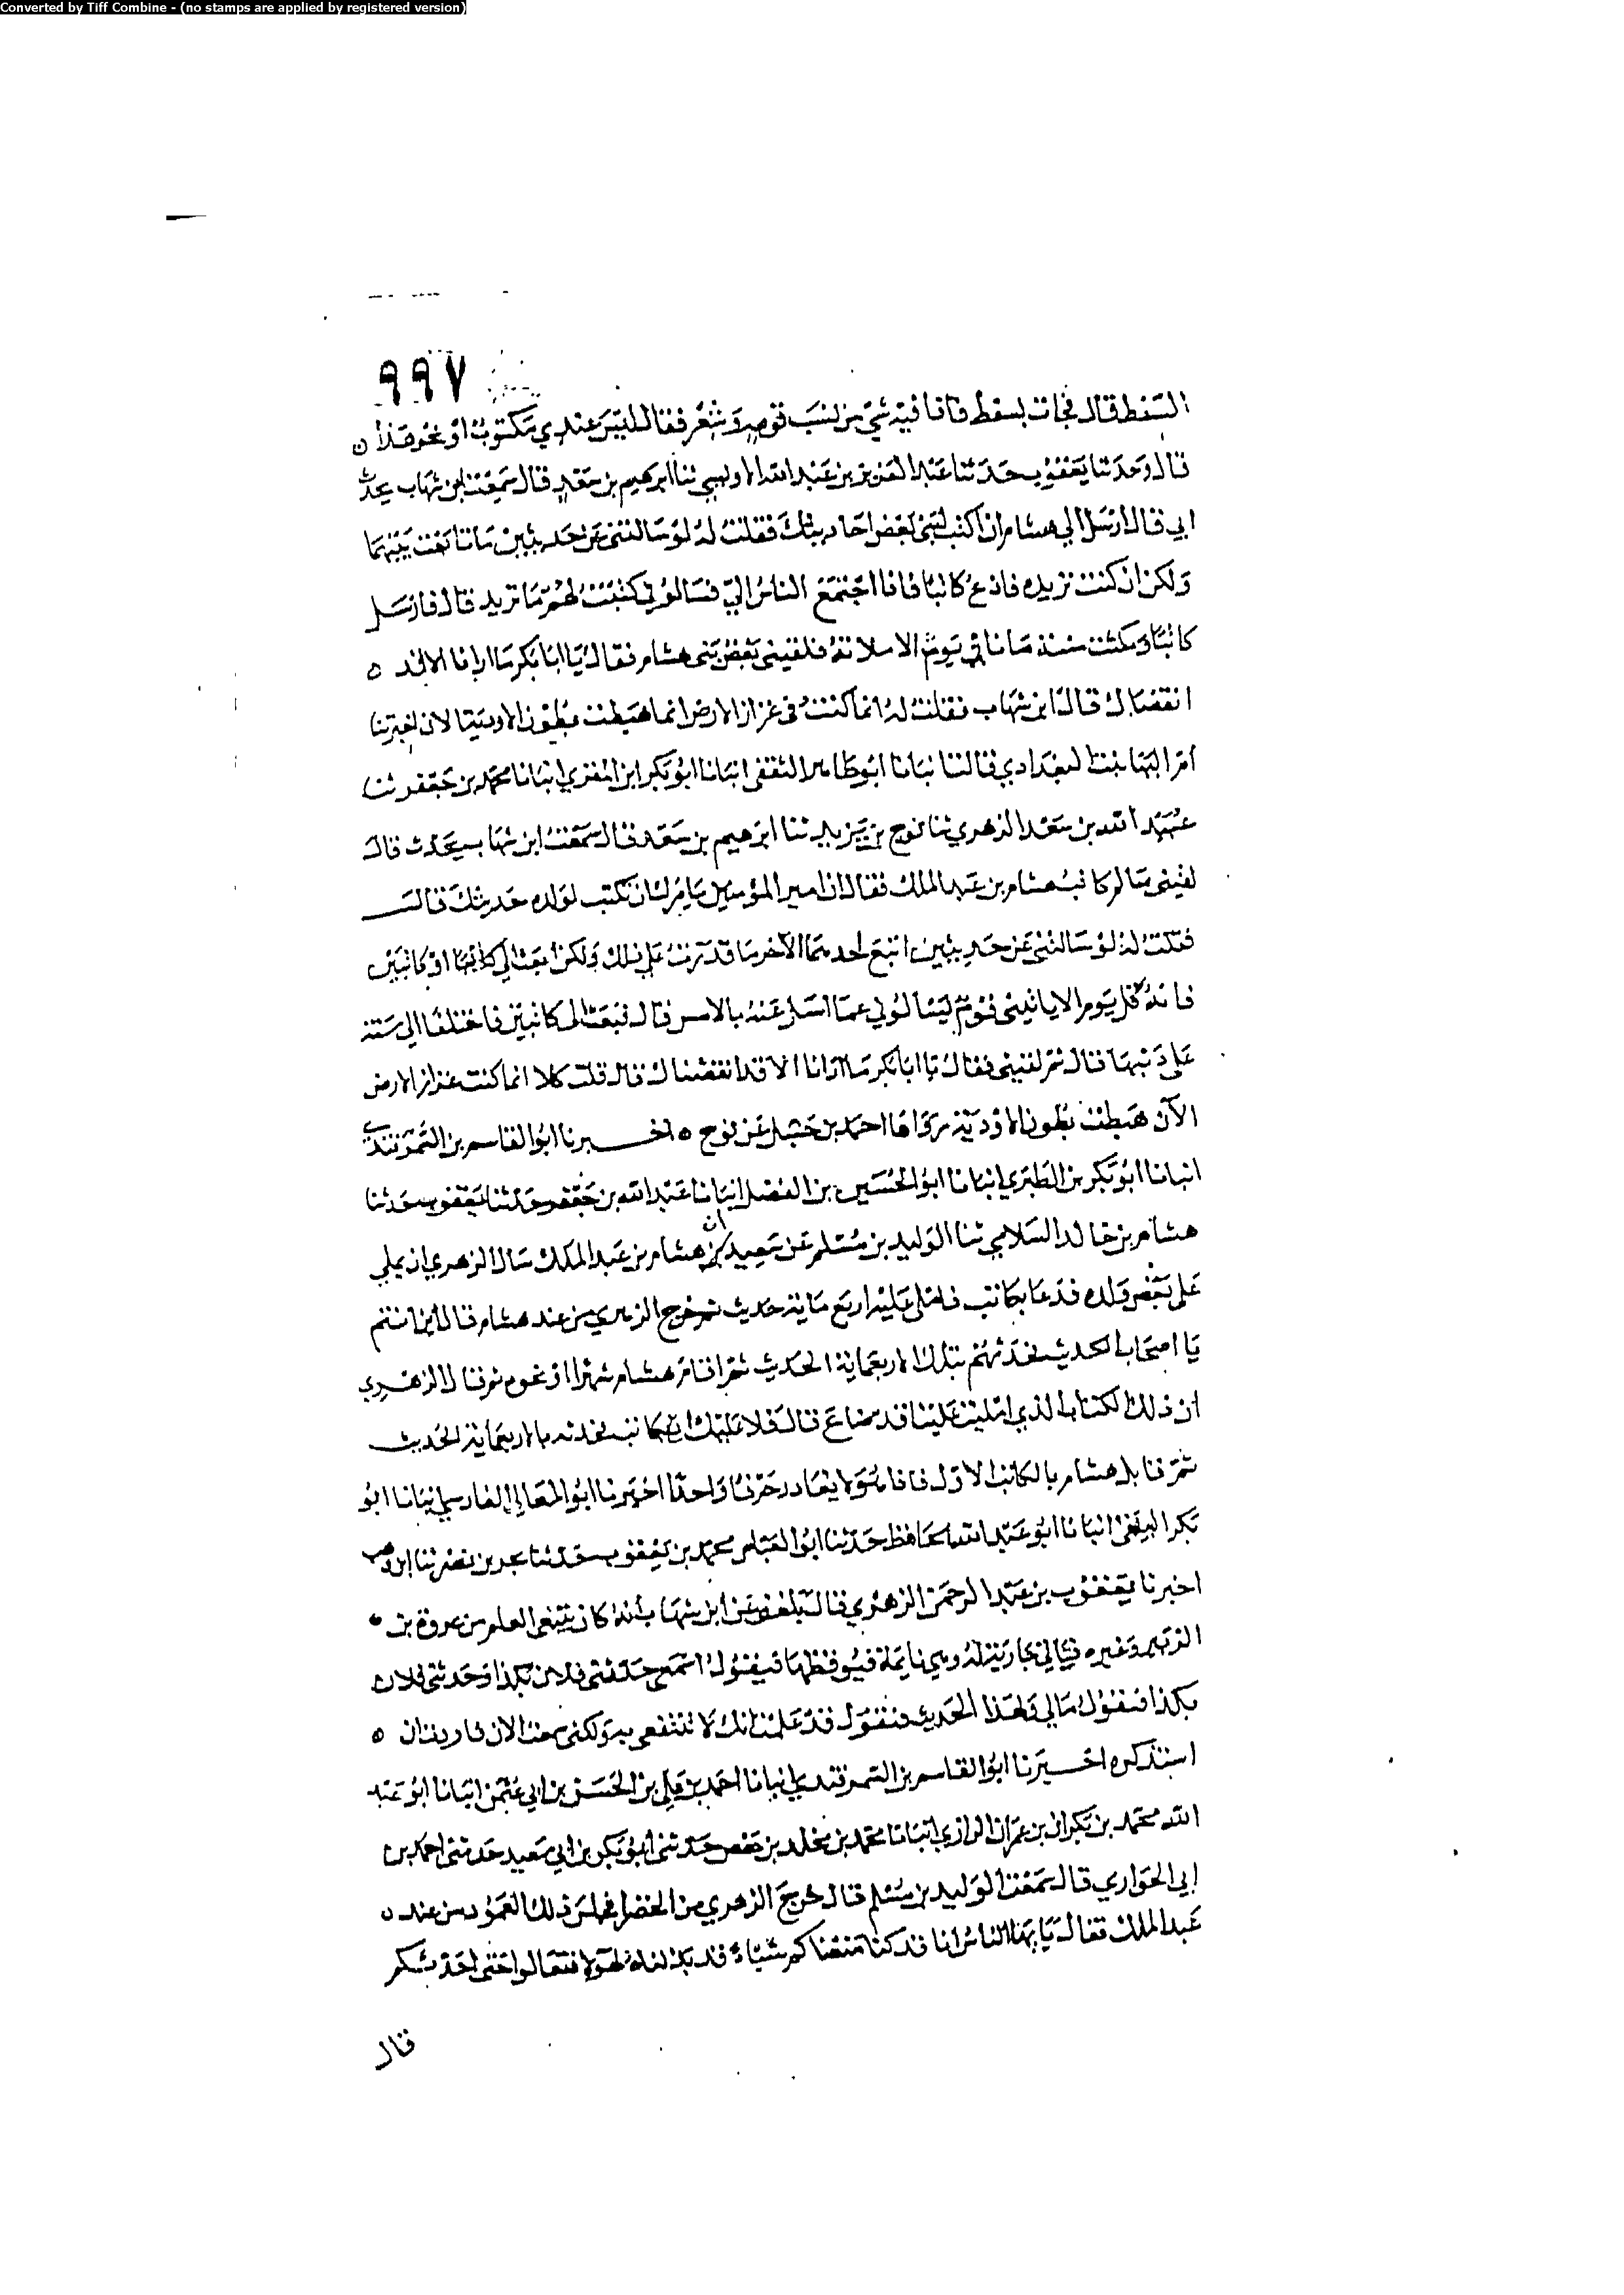 Converted by Tiff Combine - (no stamps are applied by registered version)
٩٩٧
السفط قال فجات بسفط فاذا فيه شي من نسب قومه وشعر فقال ليس عندي مكتوب او نحو هذا ن
قال وحدثنا يعقوب حدثنا عبد العزيز بن عبد الله الاويسي ثنا ابرهيم بن سعد قال سمعت ابن شهاب يحدث
ابي قال ارسل الي هشام ان اكتب لبني بعض احاديثك فقلت له لو سالتني عن حديثين ما تابعت بينهما
ولكن ان كنت تريده فادع كاتبا فاذا اجتمع الناس الي فسالوني كتبت لهم ما تريد قال فارسل
كاتبا ومكثت سنة ما ياتي يوم الا ملاته فلقيني بعض بني هشام فقال يا ابا بكر ما ارانا الا قد ٥
انقضناك قال ابن شهاب فقلت له انما كنت في عزاز الارض انما هبطت بطون الاودية الان اخبرتنا
ام البها بنت البغدادي قالت انبانا ابو طاهر الثقفي انبانا ابو بكر ابن المقري انبانا محمد بن جعفر ثنا
عبيد الله بن سعد الزهري ثنا نوح بن يزيد ثنا ابرهيم بن سعد قال سمعت ابن شهاب يحدث قال
لقيني سالم كاتب هشام بن عبد الملك فقال ان امير المؤمنين يامرك ان تكتب لولده حديثك قال
فقلت له لو سالتني عن حديثين اتبع احدهما الاخر ما قدرت على ذلك ولكن ابعث الي كاتبا او كاتبين
فانه قل يوم الا ياتيني قوم يسالوني عما اسل عنه بالامس قال فبعث الي كاتبين فاختلفا الي سنة
على دينهما قال ثم لقيني فقال يا ابا بكر ما ارانا الا قد انقضناك قال قلت كلا انما كنت عزاز الارض
الآن هبطت بطون الاودية رواها احمد بن حنبل عن نوح ٥ اخبرنا ابو القاسم بن السمرقندي
انبانا ابو بكر بن الطبري انبانا ابو الحسين بن الفضل انبانا عبد الله بن جعفر حدثنا يعقوب حدثنا
هشام بن خالد السلامي ثنا الوليد بن مسلم عن سعيد ان هشام بن عبد الملك سال الزهري ان يملي
على بعض ولده فدعا بكاتب فاملى عليه اربع ماية حديث ثم خرج الزهري من عند هشام قال اين انتم
يا اصحاب الحديث فحدثهم بتلك الاربعماية الحديث ثم اقام هشام شهرا او نحوه ثم قال للزهري
ان ذلك الكتاب الذي امليت علينا قد ضاع قال فلا عليك ادع كاتب فحدثه بالاربعماية الحديث
ثم قابل هشام بالكاتب الاول فاذا هو لا يغادر حرفا واحدا اخبرنا ابو المعالي الفارسي انبانا ابو
بكر البيهقي انبانا ابو عبد الله الحافظ حدثنا ابو العباس محمد بن يعقوب حدثنا بحر بن نصر ثنا ابن وهب
اخبرنا يعقوب بن عبد الرحمن الزهري قال بلغني عن ابن شهاب انه كان يبتغي العلم من عروة بن ٥
الزبير وغيره فياتي جارية له وهي نايمة فيوقظها فيقول اسمعي حدثني فلان بكذا وحدثني فلان
بكذا فتقول مالي ولهذا الحديث فيقول قد علمت انك لا تنتفعي به ولكني سمعت الان فاردت ان ٥
استذكره اخبرنا ابو القاسم بن السمرقندي انبانا احمد بن علي بن الحسن بن ابي عثمن انبانا ابو عبد
الله محمد بن بكران بن عمران الرازي انبانا محمد بن مخلد بن حفص حدثني ابو بكر بن ابي سعيد حدثني احمد بن
ابي الحواري قال سمعت الوليد بن مسلم قال خرج الزهري من الخضرا فجلس ذلك العمود من عند ٥
عبد الملك فقال يايها الناس انا قد كنا منعناكم شياء قد بذلناه لهولا فتعالوا حتى احدثكم
قال